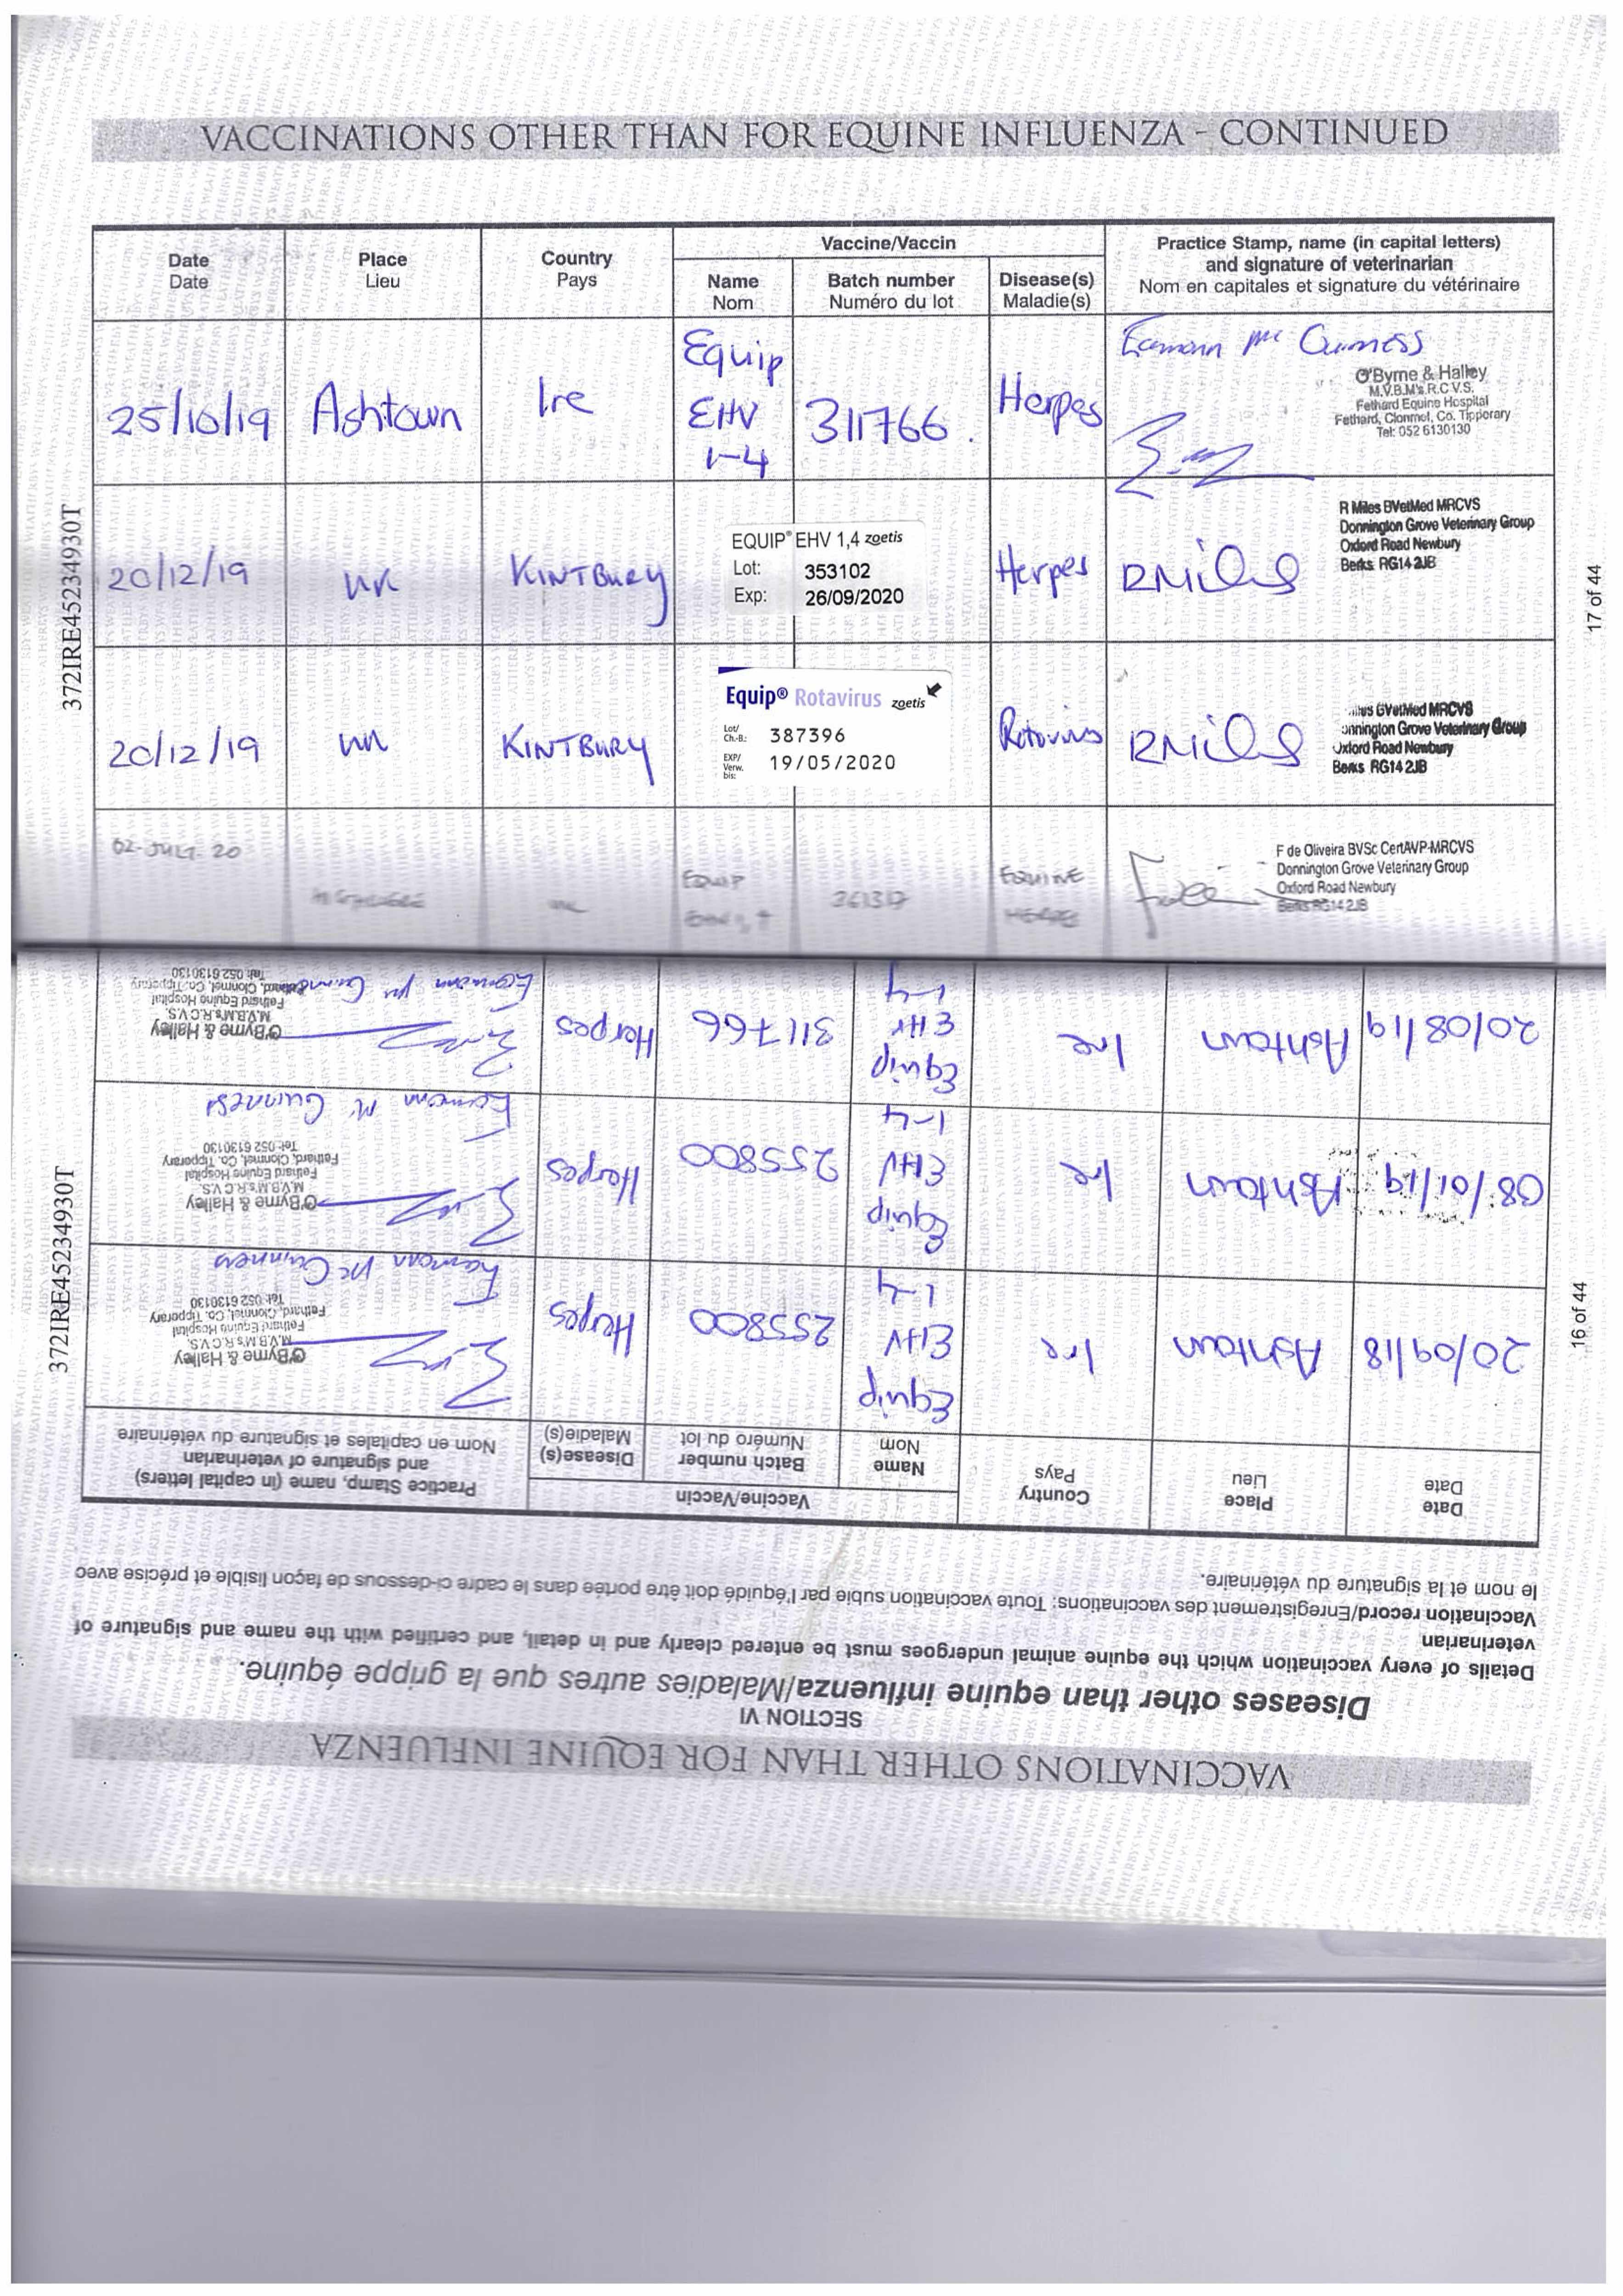 VACCINATIONS OTHER THAN FOR EQUINE INFLUENZA - CONTINUED
Date
Date
Place
Lieu
Country
Pays
Vaccine/Vaccin
Name
Nom
Batch number
Numéro du lot
Disease(s)
Maladie(s)
Practice Stamp, name (in capital letters)
and signature of veterinarian
Nom en capitales et signature du vétérinaire
25/10/19
Ashtown
Ire
Equip
EHV
1-4
311766.
Herpes
Eamonn Mc Guinness
O'Byrne & Halley
M.V.B.M's.R.C.V.S.
Fethard Equine Hospital
Fethard, Clonmel, Co. Tipperary
Tel: 052 6130130
20/12/19
UK
KINTBURY
EQUIP® EHV 1,4 zoetis
Lot: 353102
Exp: 26/09/2020
Herpes
RMiles
R Miles BVetMed MRCVS
Donnington Grove Veterinary Group
Oxford Road Newbury
Berks RG14 2JB
20/12/19
UK
KINTBURY
Equip® Rotavirus zoetis
Lot/
Ch.-B.: 387396
EXP/
Verw.
bis: 19/05/2020
Rotovirus
RMiles
BVetMed MRCVS
Donnington Grove Veterinary Group
Oxford Road Newbury
Berks RG14 2JB
02-JULY-20
UK
EQUIP
EHV 1,4
EQUINE
HERPES
F de Oliveira BVSc CertAVP MRCVS
Donnington Grove Veterinary Group
Oxford Road Newbury
Berks RG14 2JB
372IRE45234930T
17 of 44
VACCINATIONS OTHER THAN FOR EQUINE INFLUENZA
SECTION VI
Diseases other than equine influenza/Maladies autres que la grippe équine.
Details of every vaccination which the equine animal undergoes must be entered clearly and in detail, and certified with the name and signature of
veterinarian
Vaccination record/Enregistrement des vaccinations: Toute vaccination subie par l'équidé doit être portée dans le cadre ci-dessous de façon lisible et précise avec
le nom et la signature du vétérinaire.
Date
Date
Place
Lieu
Country
Pays
Vaccine/Vaccin
Name
Nom
Batch number
Numéro du lot
Disease(s)
Maladie(s)
Practice Stamp, name (in capital letters)
and signature of veterinarian
Nom en capitales et signature du vétérinaire
20/09/18
Ashtown
Ire
Equip
EHV
1-4
255800
Herpes
O'Byrne & Halley
M.V.B.M's.R.C.V.S.
Fethard Equine Hospital
Fethard, Clonmel, Co. Tipperary
Tel: 052 6130130
Eamonn Mc Guinness
08/01/19
Ashtown
Ire
Equip
EHV
1-4
255800
Herpes
O'Byrne & Halley
M.V.B.M's.R.C.V.S.
Fethard Equine Hospital
Fethard, Clonmel, Co. Tipperary
Tel: 052 6130130
Eamonn Mc Guinness
20/08/19
Ashtown
Ire
Equip
EHV
1-4
311766
Herpes
O'Byrne & Halley
M.V.B.M's.R.C.V.S.
Fethard Equine Hospital
Fethard, Clonmel, Co. Tipperary
Tel: 052 6130130
Eamonn Mc Guinness
372IRE45234930T
16 of 44